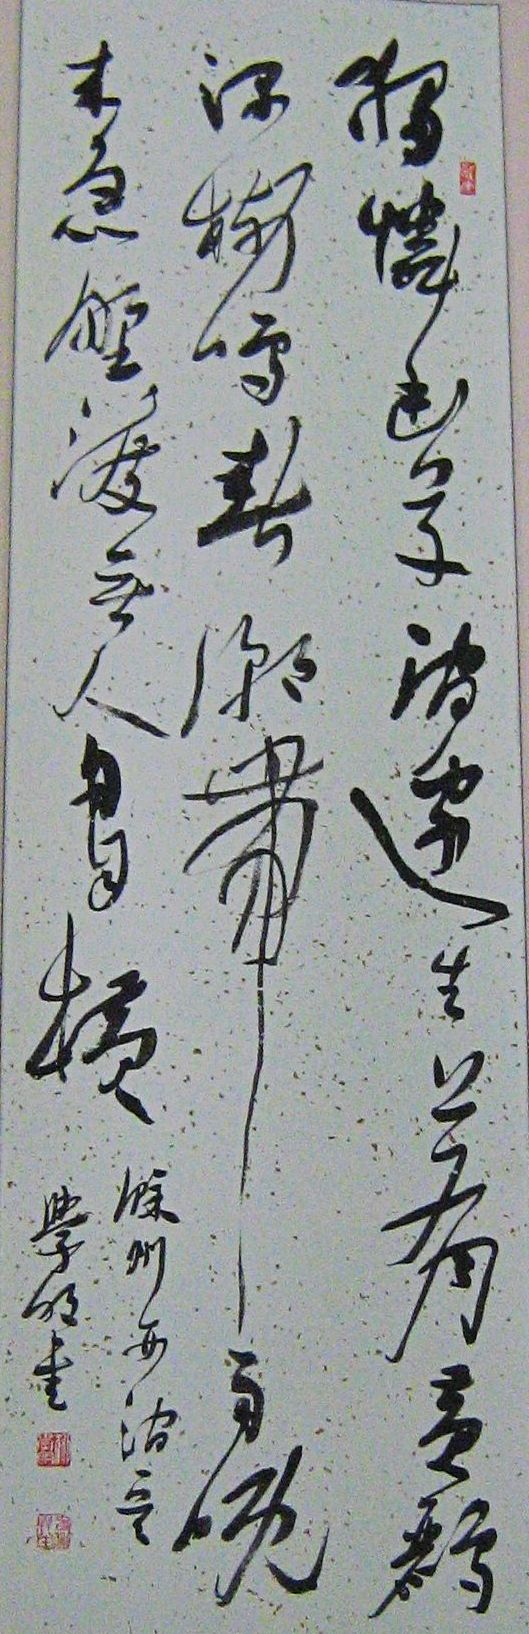 獨憐幽草澗邊生上有黃鸝
深樹鳴春潮帶雨晚
來急野渡無人舟自橫
滁州西澗